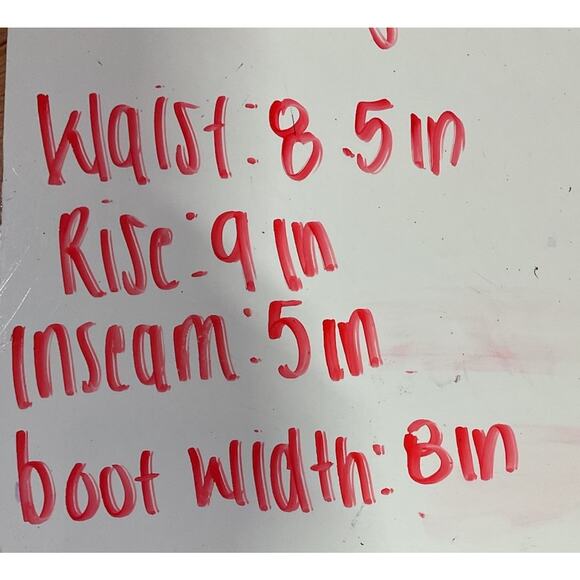 Waist: 8.5in
Rise: 9 in
inseam: 5in
boot width: 8in